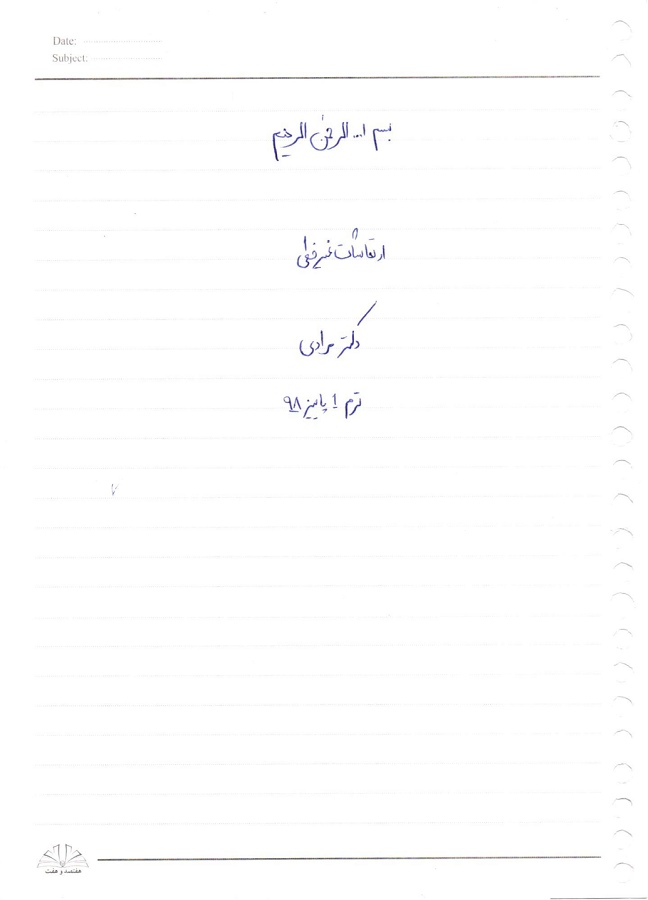 Date:
Subject:
بسم ا... الرحمن الرحیم
ارتعاشات غیرخطی
دکتر مرادی
ترم 1 پاییز ۹۸
۷
هفتصد و هفت